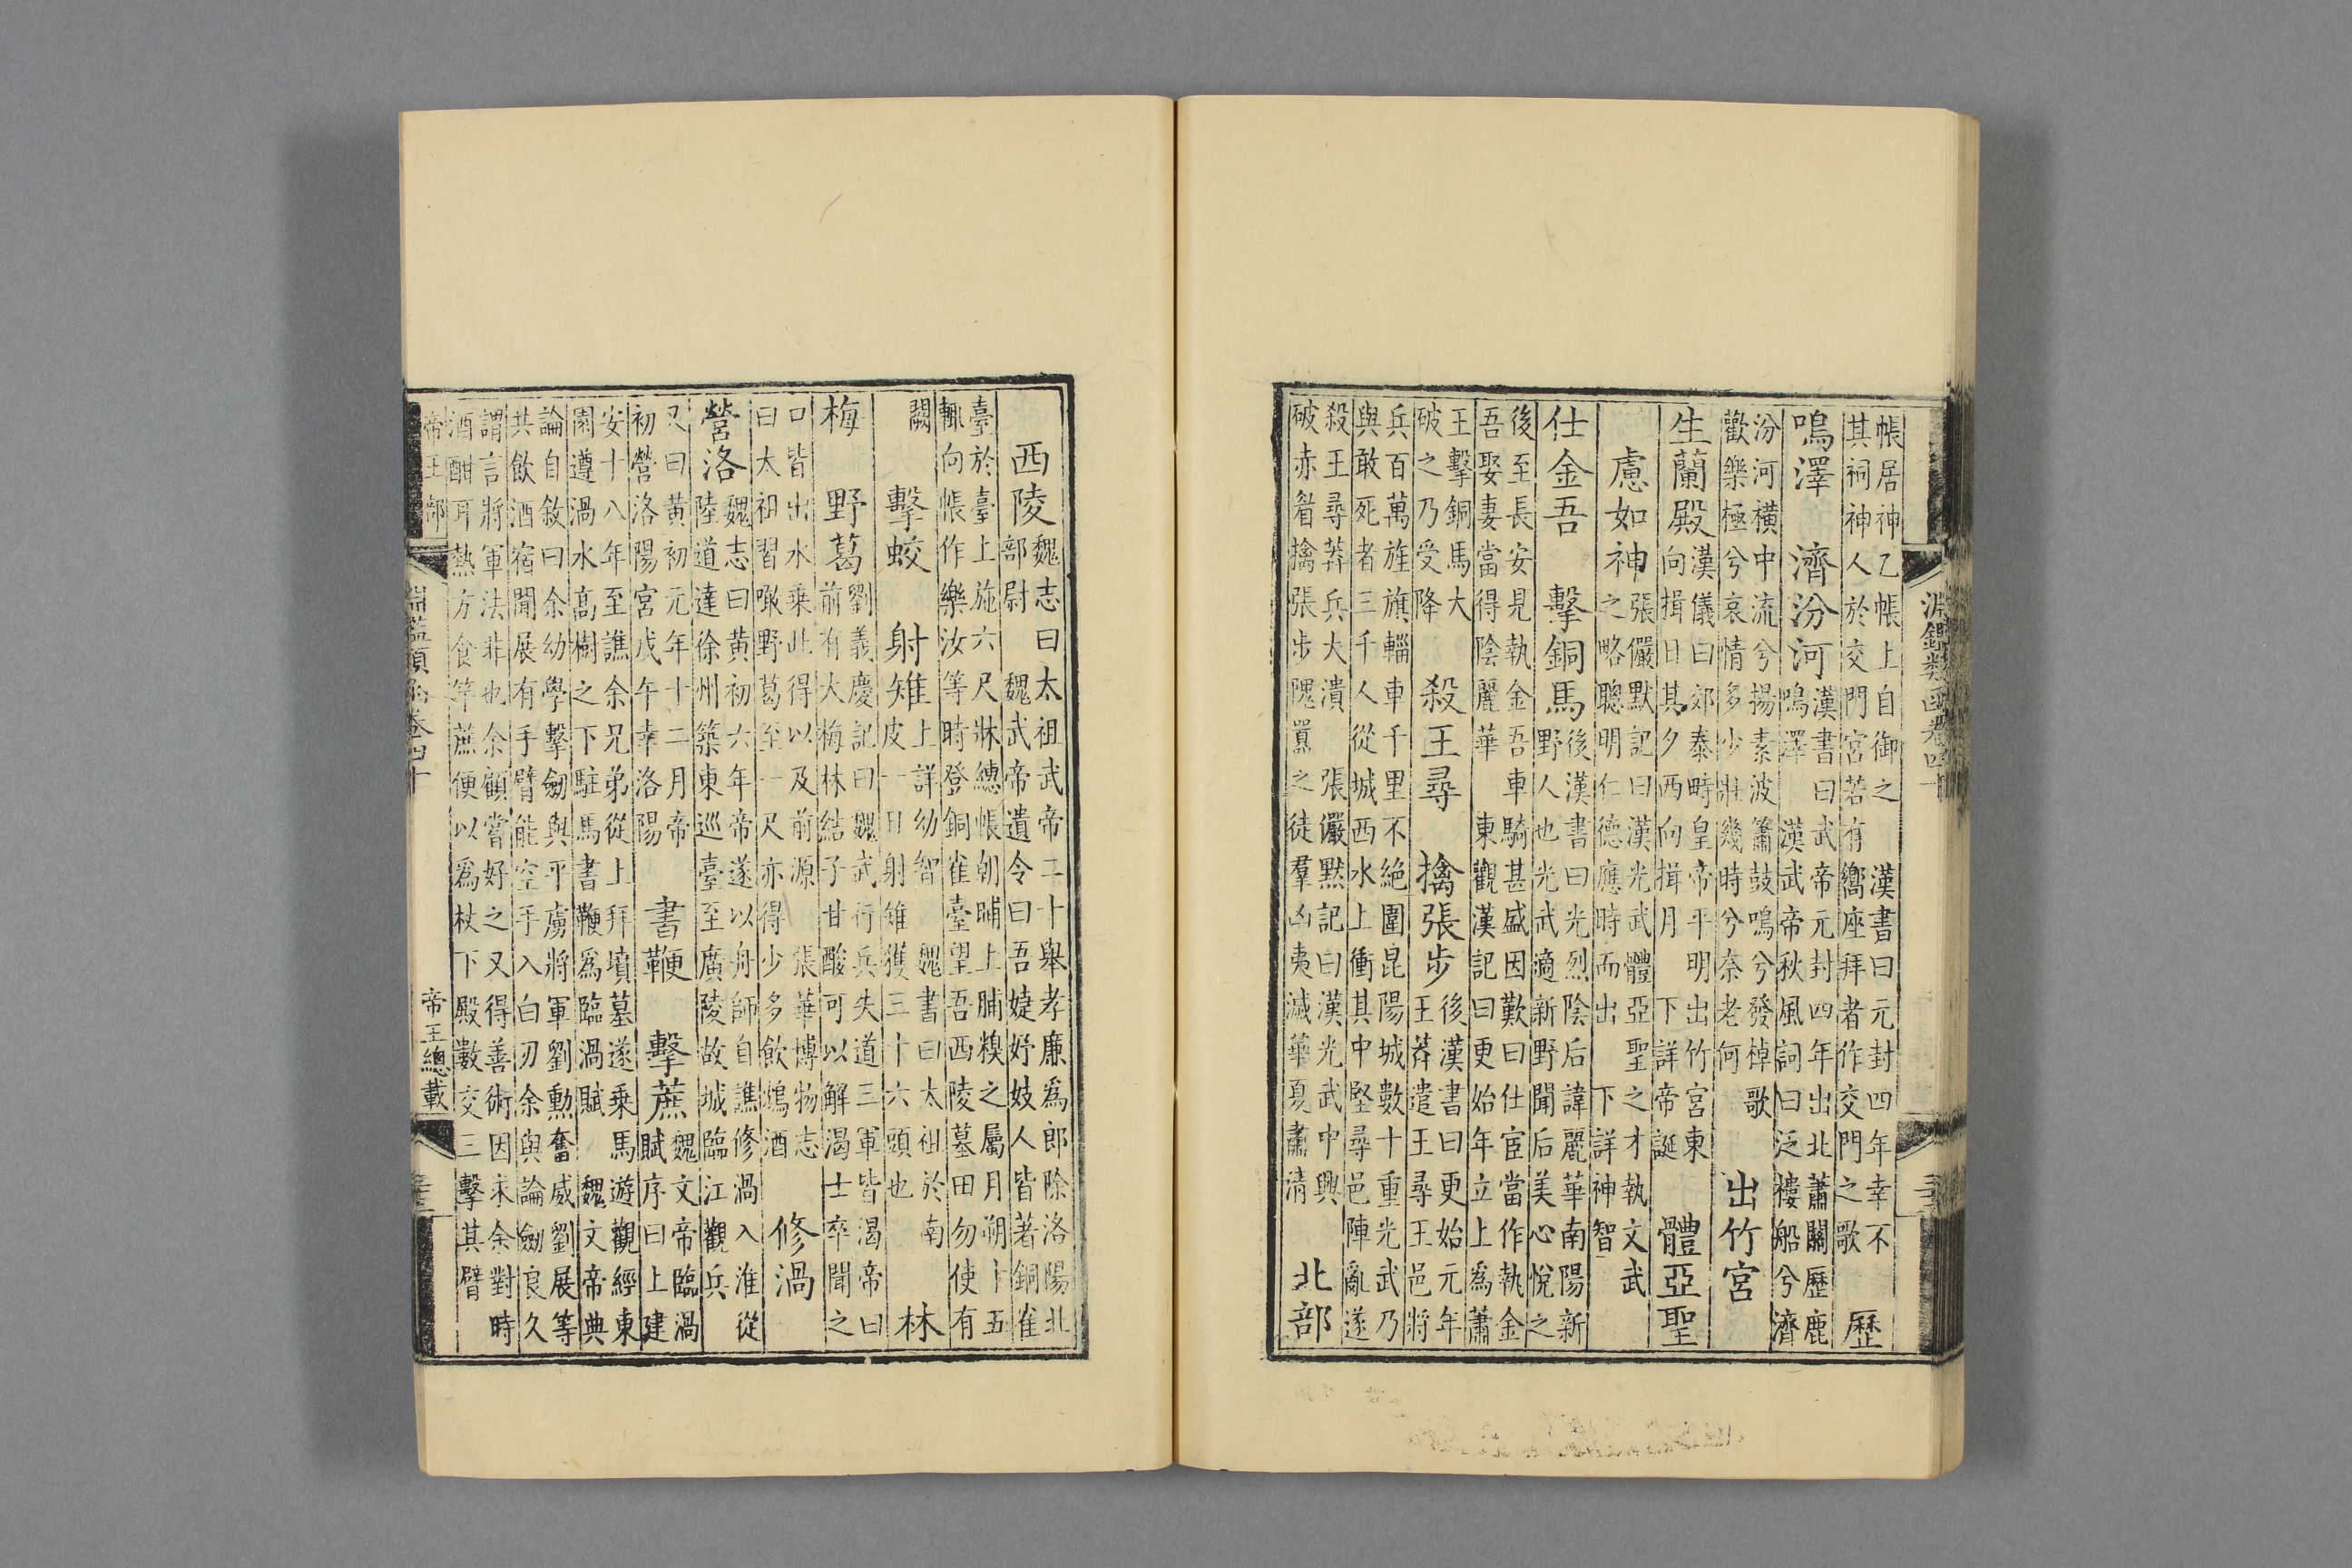 淵鑑類函卷四十
帳居神乙帳上自御之　漢書曰元封四年幸不
其祠神人於交門宮若有嚮座拜者作交門之歌　歷
鳴澤　濟汾河　漢書曰武帝元封四年出北蕭關歷鹿
鳴澤　漢武帝秋風詞曰泛樓船兮濟
汾河橫中流兮揚素波簫鼓鳴兮發棹歌
歡樂極兮哀情多少壯幾時兮奈老何　出竹宮
生蘭殿　漢儀曰郊泰畤皇帝平明出竹宮東
向揖日其夕西向揖月　下詳帝誕　體亞聖
慮如神　張儼默記曰漢光武體亞聖之才執文武
之略聰明仁德應時而出　下詳神智
仕金吾　擊銅馬　後漢書曰光烈陰后諱麗華南陽新
野人也光武適新野聞后美心悅之
後至長安見執金吾車騎甚盛因歎曰仕宦當作執金
吾娶妻當得陰麗華　東觀漢記曰更始年立上為蕭
王擊銅馬大
破之乃受降　殺王尋　擒張步　後漢書曰更始元年
王莽遣王尋王邑將
兵百萬旌旗輜車千里不絕圍昆陽城數十重光武乃
與敢死者三千人從城西水上衝其中堅尋邑陣亂遂
殺王尋莽兵大潰　張儼默記曰漢光武中興
破赤眉擒張步隗囂之徒羣凶夷滅華夏肅清　北部
西陵　魏志曰太祖武帝二十舉孝廉為郎除洛陽北
部尉　魏武帝遺令曰吾婕妤妓人皆著銅雀
臺於臺上施六尺牀繐帳朝晡上脯糗之屬月朔十五
輒向帳作樂汝等時登銅雀臺望吾西陵墓田勿使有
闕　擊蛟　射雉　上詳幼智　魏書曰太祖於南
皮一日射雉獲三十六頭也　林
梅　野葛　劉義慶記曰魏武行兵失道三軍皆渴帝曰
前有大梅林結子甘酸可以解渴士卒聞之
口皆出水乘此得以及前源　張華博物志
曰太祖習噉野葛至一尺亦得少多飲鴆酒　修渦
營洛　魏志曰黃初六年帝遂以舟師自譙修渦入淮從
陸道達徐州築東巡臺至廣陵故城臨江觀兵
又曰黃初元年十二月帝
初營洛陽宮戊午幸洛陽　書鞭　擊蔗　魏文帝臨渦
賦序曰上建
安十八年至譙余兄弟從上拜墳墓遂乘馬遊觀經東
園遵渦水高樹之下駐馬書鞭為臨渦賦　魏文帝典
論自敘曰余幼學擊劒與平虜將軍劉勳奮威劉展等
共飲酒宿聞展有手臂能空手入白刃余與論劒良久
謂言將軍法非也余顧嘗好之又得善術因求余對時
酒酣耳熱方食竿蔗便以為杖下殿數交三擊其臂
帝王部　淵鑑類函卷四十　帝王總載